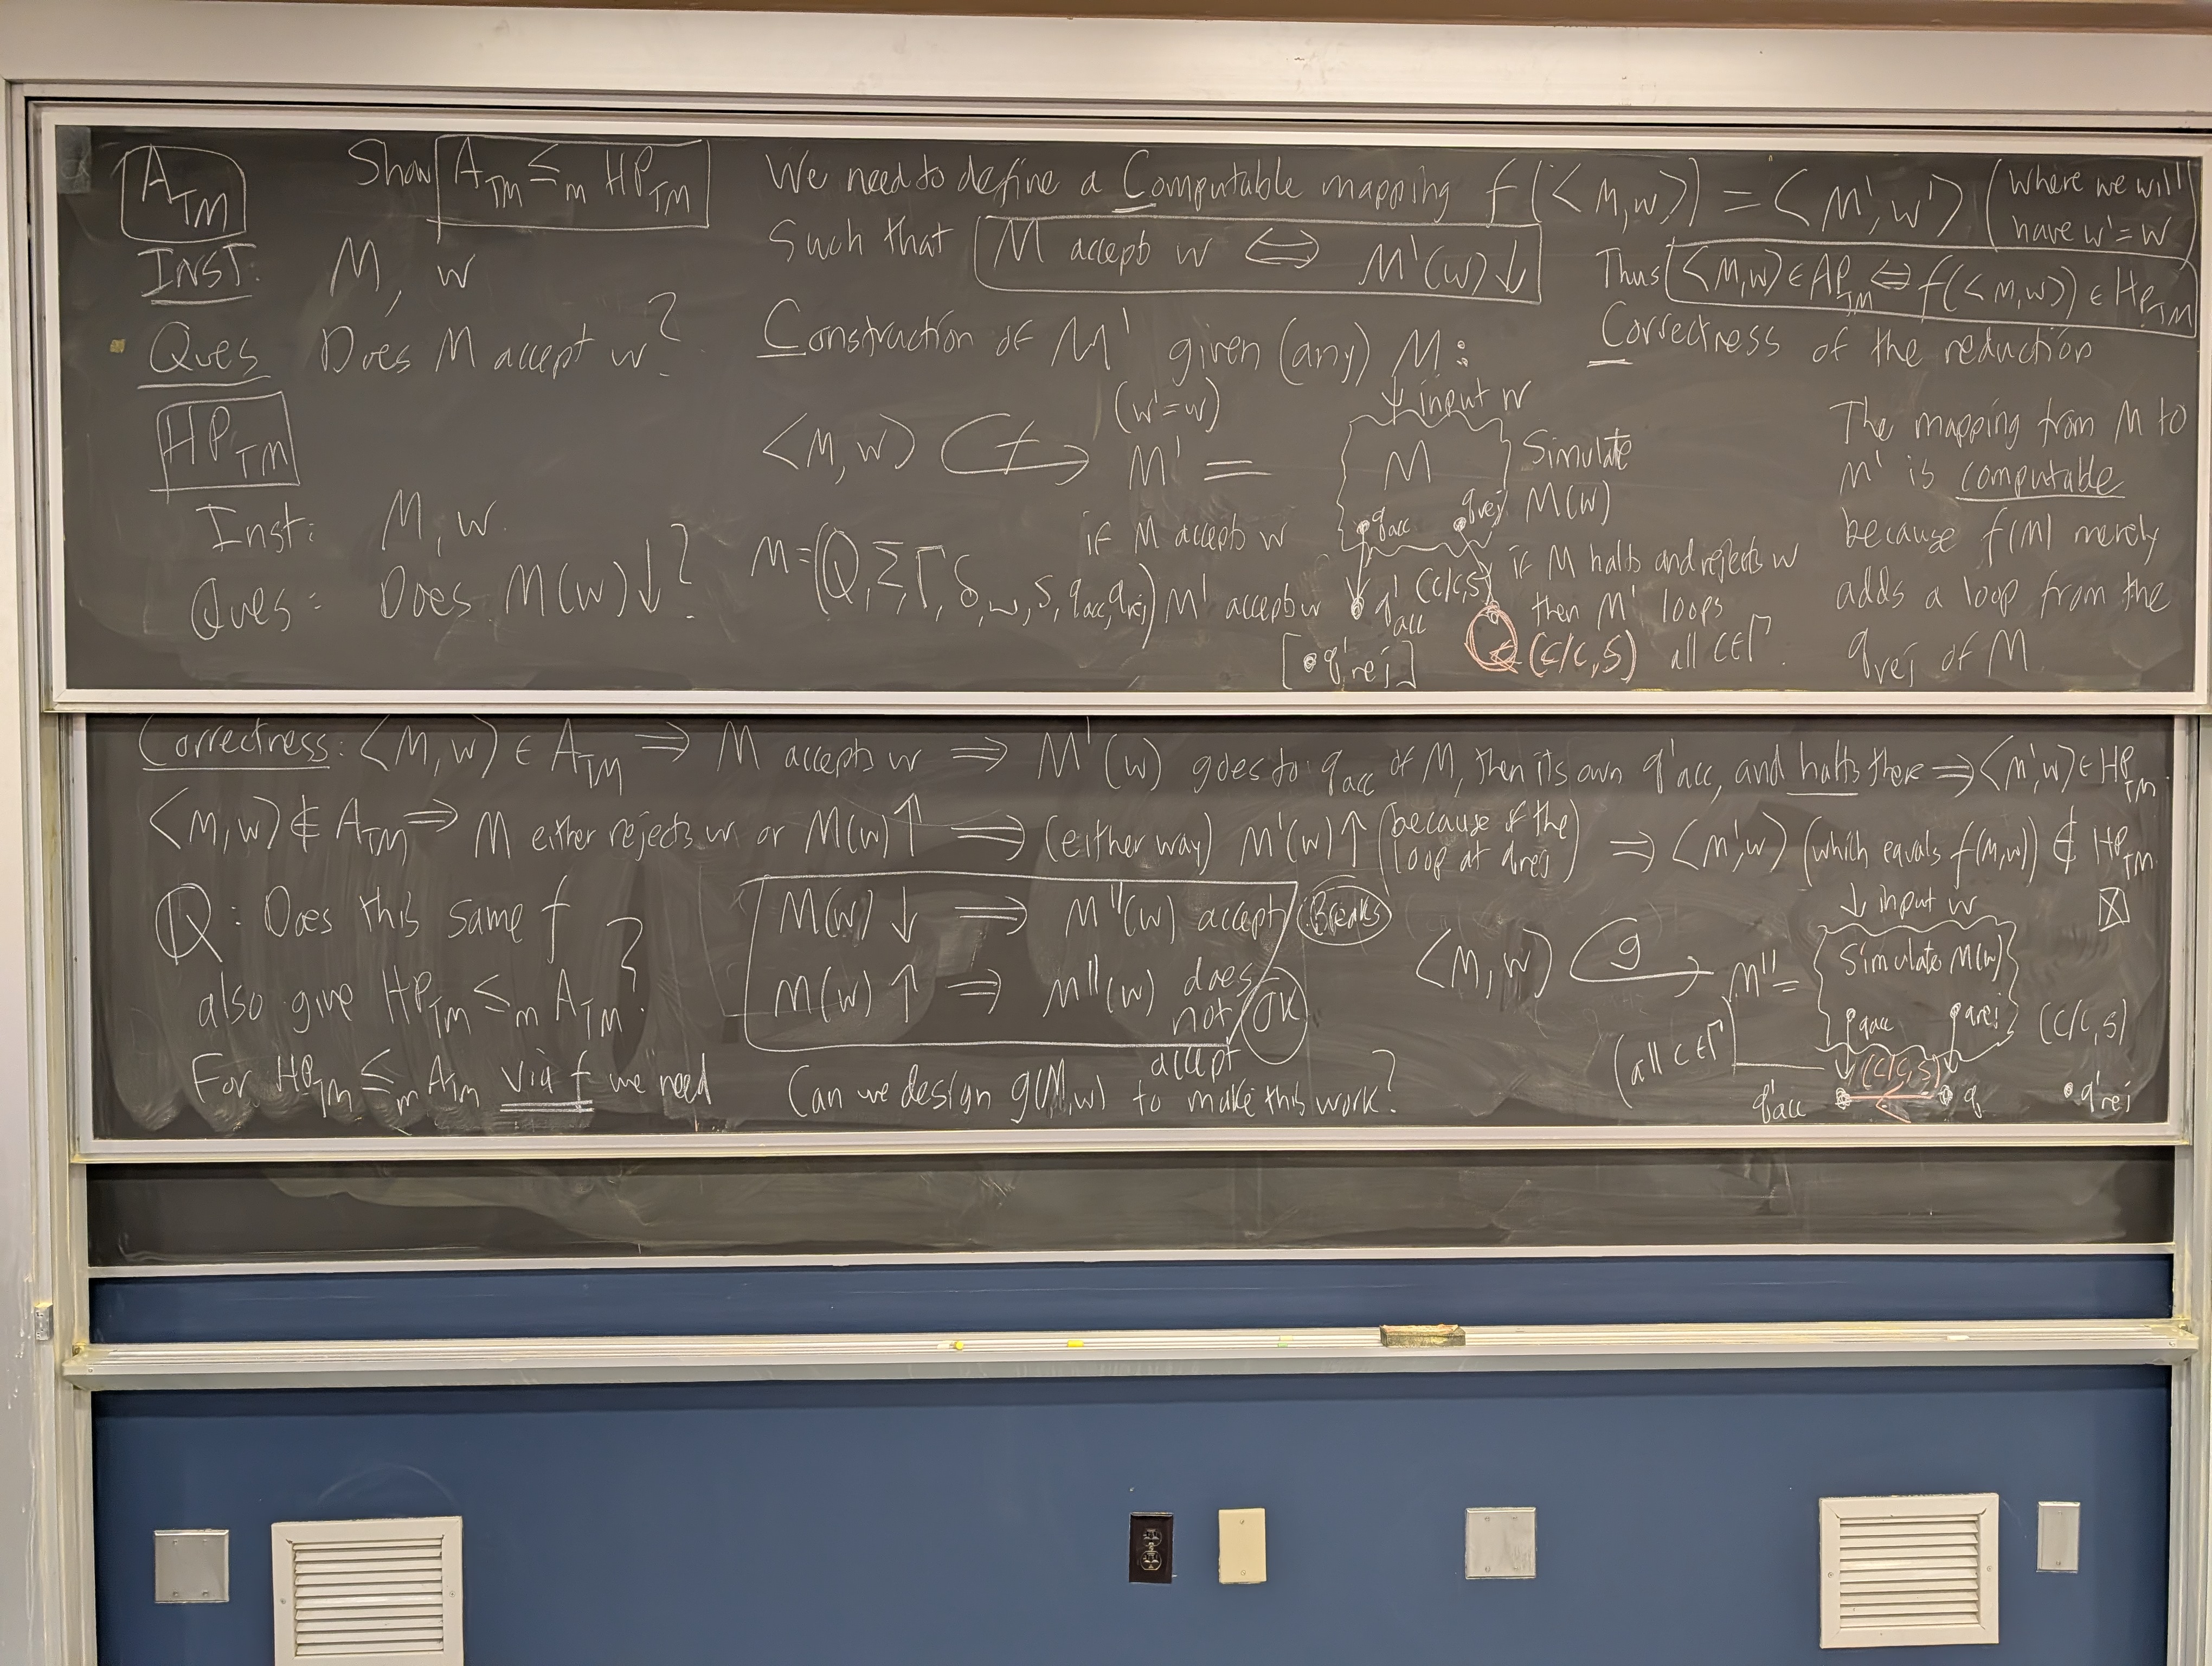 A_TM
INST: M, w
Ques Does M accept w?
HP_TM
Inst: M, w.
Ques: Does M(w)↓?
Show A_TM ≤_m HP_TM
We need to define a Computable mapping f(<M,w>) = <M',w'> (where we will have w'=w)
Such that M accepts w ⟺ M'(w)↓
Thus <M,w> ∈ AP_TM ⟺ f(<M,w>) ∈ HP_TM
Construction of M' given (any) M:
(w'=w)
<M,w> f M' =
M=(Q,Σ,Γ,δ,␣,s,qacc,qrej)
↓ input w
M
Simulate
M(w)
qacc qrej
if M accepts w
M' accepts w
q'acc
(c/c,S)
[• q'rej]
if M halts and rejects w
then M' loops
(c/c,S) all c∈Γ.
Correctness of the reduction
The mapping from M to
M' is computable
because f(M) merely
adds a loop from the
qrej of M.
Correctness: <M,w> ∈ A_TM ⟹ M accepts w ⟹ M'(w) goes to qacc of M, then its own q'acc, and halts there ⟹ <M',w> ∈ HP_TM.
<M,w> ∉ A_TM ⟹ M either rejects w or M(w)↑ ⟹ (either way) M'(w)↑ (because of the loop at qrej) ⟹ <M',w> (which equals f(M,w)) ∉ HP_TM.
Q: Does this same f
also give HP_TM ≤_m A_TM?
For HP_TM ≤_m A_TM via f we need
M(w)↓ ⟹ M''(w) accept Breaks
M(w)↑ ⟹ M''(w) does
not
accept
OK
Can we design g(M,w) to make this work?
<M,w> g M'' =
↓ input w
Simulate M(w)
qacc qrej
(c/c,S)
(all c∈Γ)
(c/c,S)
q'acc q • q'rej